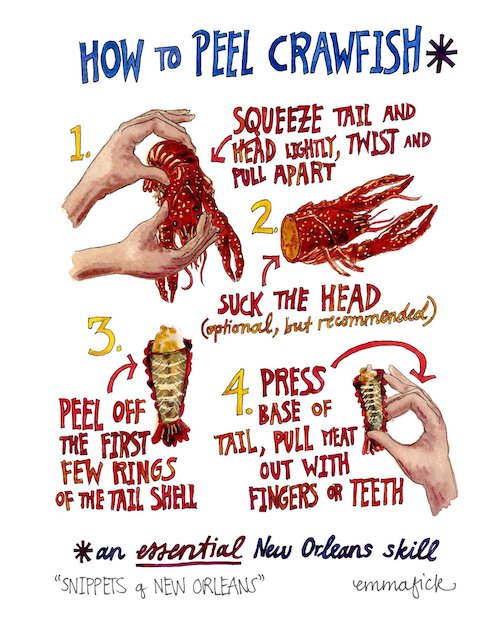 HOW TO PEEL CRAWFISH*
1.
SQUEEZE TAIL AND
HEAD LIGHTLY, TWIST AND
PULL APART
2.
SUCK THE HEAD
(optional, but recommended)
3.
PEEL OFF
THE FIRST
FEW RINGS
OF THE TAIL SHELL
4. PRESS
BASE OF
TAIL, PULL MEAT
OUT WITH
FINGERS OR TEETH
*an essential New Orleans skill
"SNIPPETS of NEW ORLEANS"
emmafick